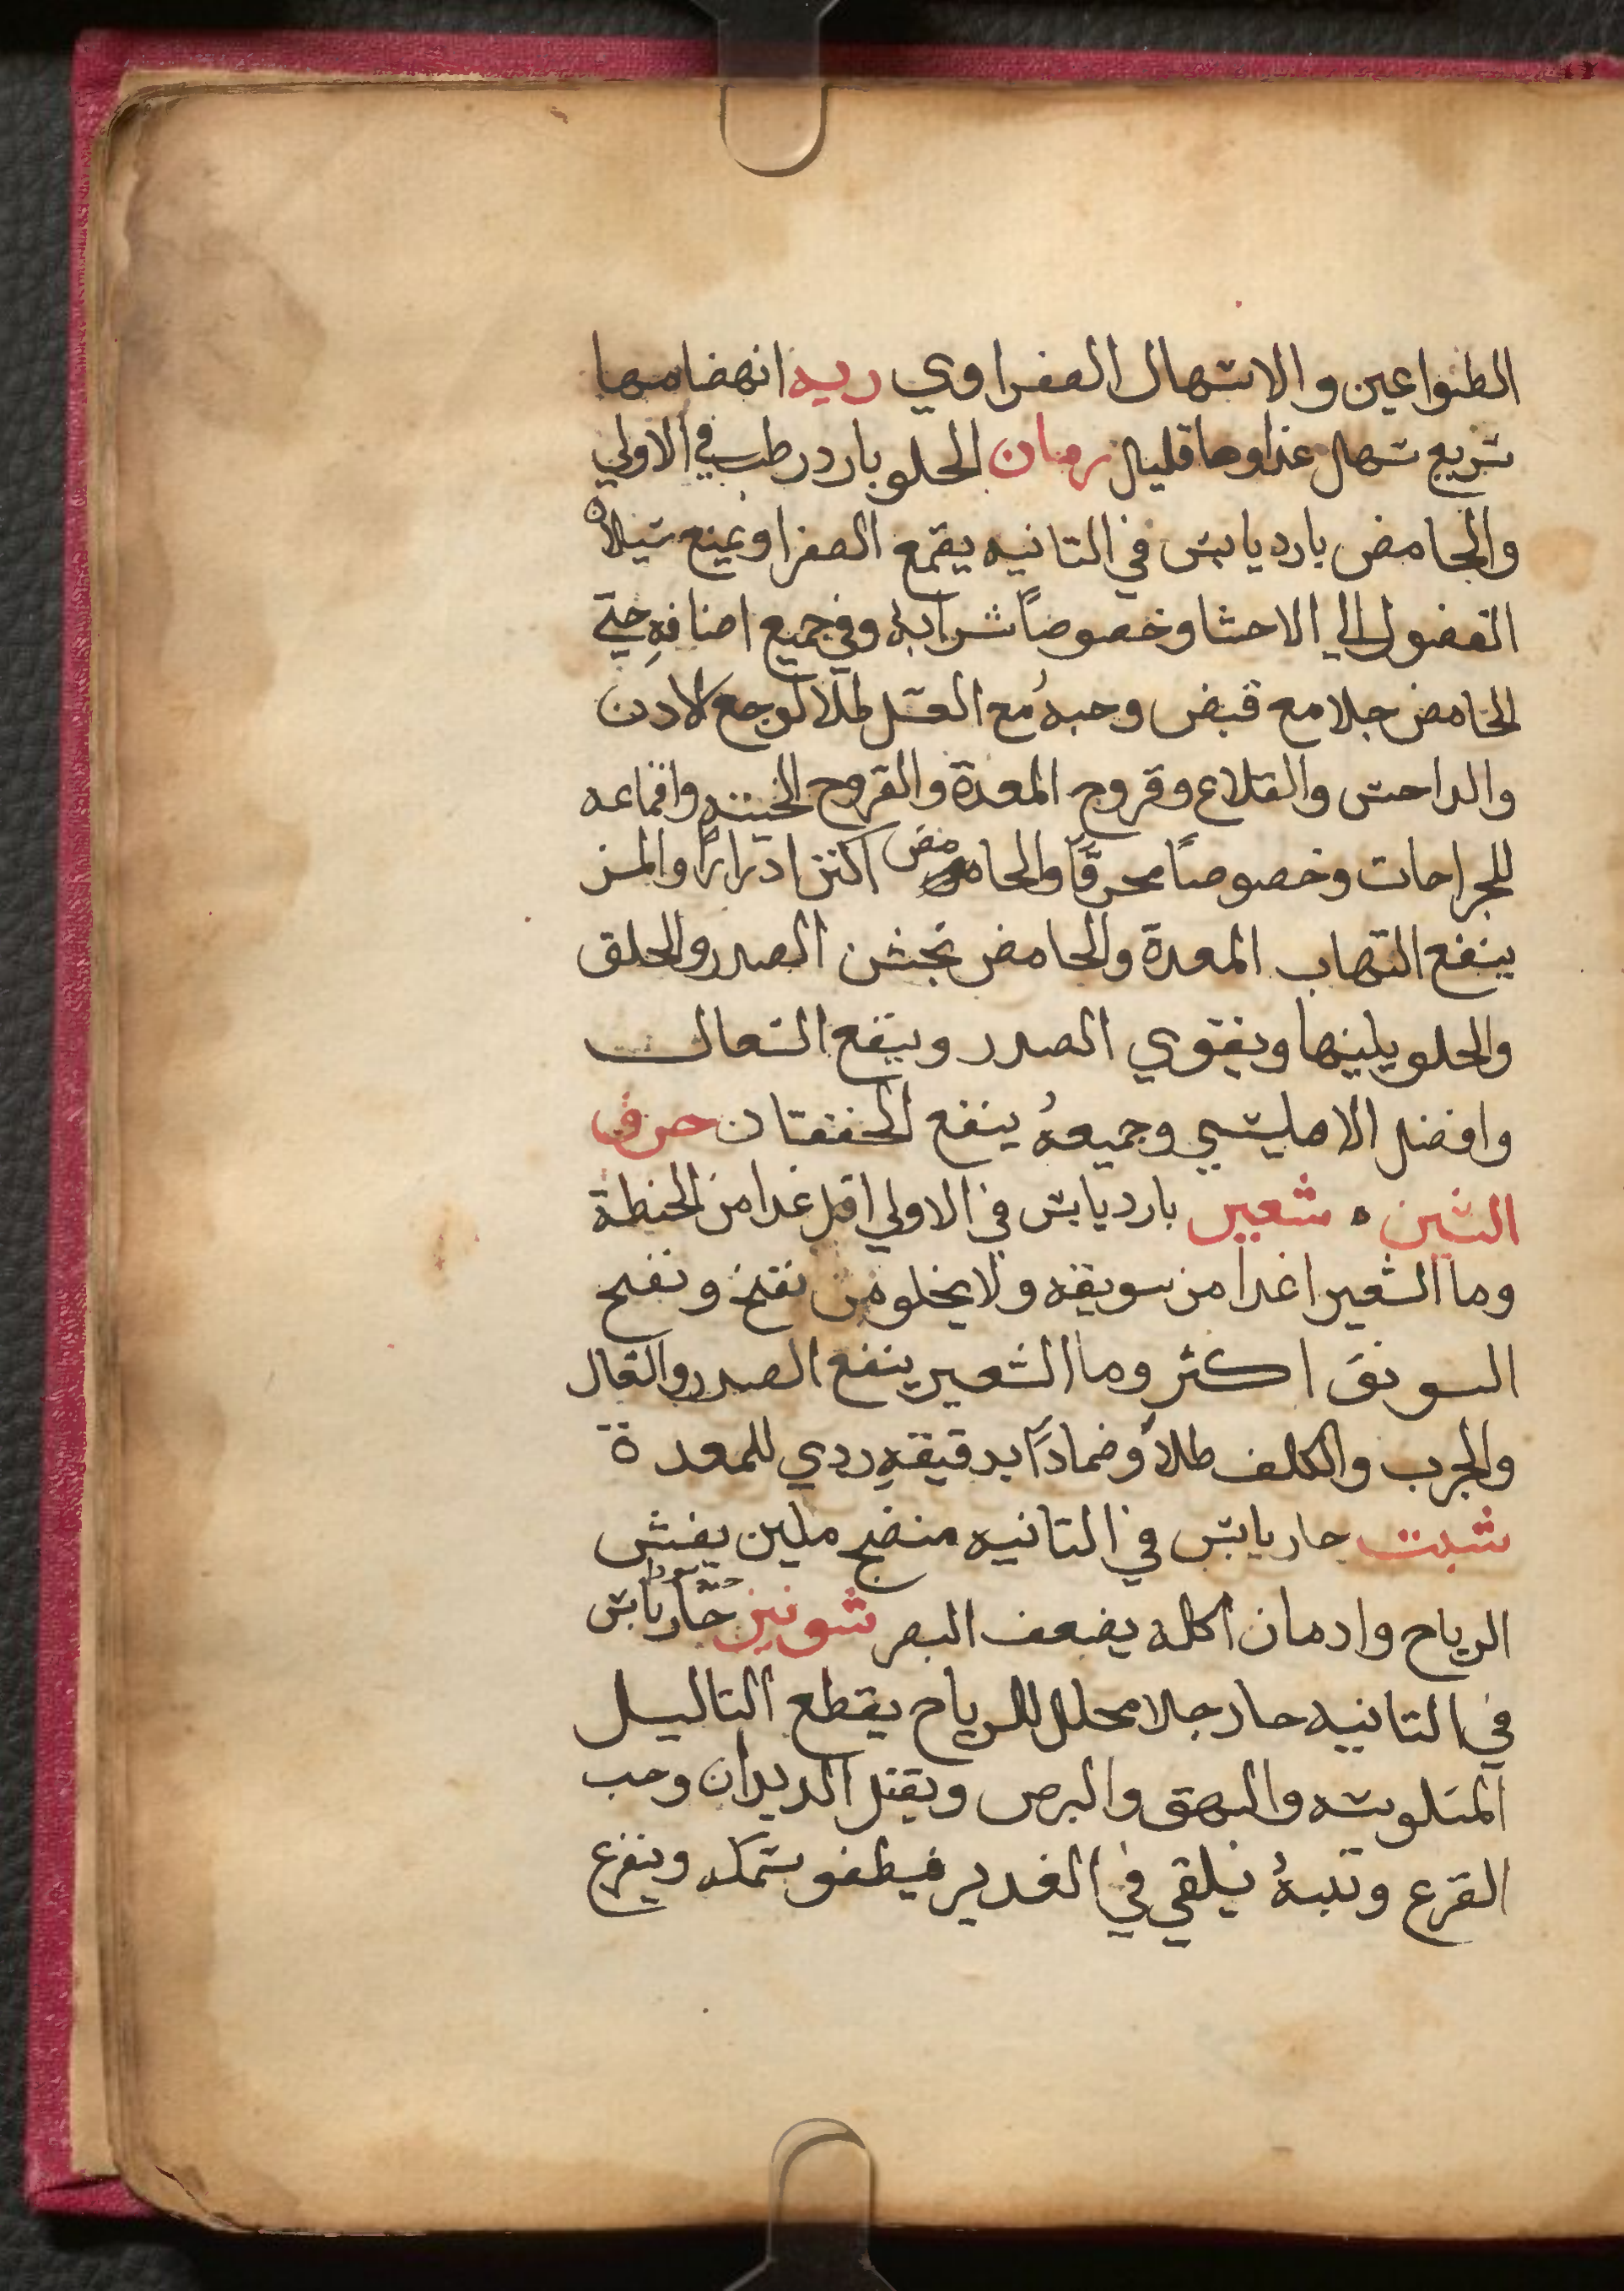 الطواعين والاسهال الصفراوي ريه انهضامها
سريع سهل غداوها قليل رمان الحلو بارد رطب في الاولي
والحامض بارد يابس في التانيه يقمع الصفرا ويمنع سيلان
الفضول الي الاحشا وخصوصاً شرابهُ وفي جميع اصنافهِ حتي
الحامض جلا مع قبض وحبهُ مع العسل طلا لوجع الادن
والداحس والقلاع وقروح المعدة والقروح الخبيته واقماعه
للجراحات وخصوصاً محرقاً والحامض اكتر ادراراً والمز
ينفع التهاب المعدة والحامض يخشن الصدر والحلق
والحلو يلينها ويقوي الصدر وينفع السعال
وافضل الامليسي وجميعهُ ينفع الخفقان حرف
الشين ه شعير بارد يابس في الاولي اقل غدا من الحنطة
وما الشعير اغدا من سويقه ولا يخلو من نفخ ونفخ
السويق اكثر وما الشعير ينفع الصدر والسعال
والجرب والكلف طلاً وضماداً بدقيقهِ ردي للمعدة
شبت حار يابس في التانيه منضج ملين يفش
الرياح وادمان اكله يضعف البصر شونيز حبه سودا حار يابس
في التانيه حار جلا محلل للرياح يقطع التاليل
المنكوسه والبهق والبرص ويقتل الديدان وحب
القرع وتنبهُ يلقي في الغدير فيطفو سمكه وينفع